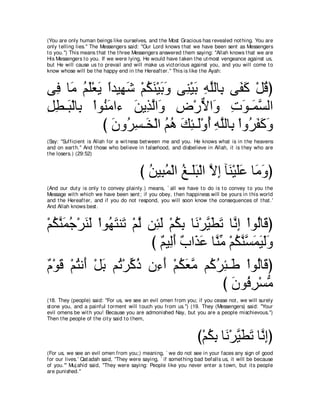 (You are only human beings like ourselves, and the Most Gracious has revealed nothing. You are
only telling lies." The Messengers said: "Our Lord knows that we have been sent as Messengers
to you.") This means that the three Messengers answered them saying: "Allah knows that we are
His Messengers to you. If we were lying, He would have taken the utmost vengeance against us,
but He will cause us to prevail and will make us victorious against you, and you will come to
know whose will be the happy end in the Hereafter." This is like the Ayah:
﴿قُلْ كَفَى بِاللَّهِ بَيْنِى وَبَيْنَكُمْ شَهِيداً يَعْلَمُ مَا فِى
السَّمَـوَتِ وَالاٌّرْضِ وَالَّذِينَ ءامَنُواْ بِالْبَـطِلِ
وَكَفَرُواْ بِاللَّهِ أُوْلَـئِكَ هُمُ الْخَـسِرُونَ ﴾
(Say: "Sufficient is Allah for a witness between me and you. He knows what is in the heavens
and on earth." And those who believe in falsehood, and disbelieve in Allah, it is they who are
the losers.) (29:52)
﴿وَمَا عَلَيْنَآ إِلاَّ الْبَلَـغُ الْمُبِينُ ﴾
(And our duty is only to convey plainly.) means, `all we have to do is to convey to you the
Message with which we have been sent; if you obey, then happiness will be yours in this world
and the Hereafter, and if you do not respond, you will soon know the consequences of that.'
And Allah knows best.
﴿قَالُواْ إِنَّا تَطَيَّرْنَا بِكُمْ لَئِن لَّمْ تَنتَهُواْ لَنَرْجُمَنَّكُمْ
وَلَيَمَسَّنَّكُمْ مِّنَّا عَذَابٌ أَلِيمٌ ﴾
﴿قَالُواْ طَـئِرُكُم مَّعَكُمْ أَءِن ذُكِّرْتُم بَلْ أَنتُمْ قَوْمٌ
مُّسْرِفُونَ ﴾
(18. They (people) said: "For us, we see an evil omen from you; if you cease not, we will surely
stone you, and a painful torment will touch you from us.") (19. They (Messengers) said: "Your
evil omens be with you! Because you are admonished Nay, but you are a people mischievous.")
Then the people of the city said to them,
﴿إِنَّا تَطَيَّرْنَا بِكُمْ﴾
(For us, we see an evil omen from you;) meaning, `we do not see in your faces any sign of good
for our lives.' Qatadah said, "They were saying, `if something bad befalls us, it will be because
of you.'" Mujahid said, "They were saying: People like you never enter a town, but its people
are punished."